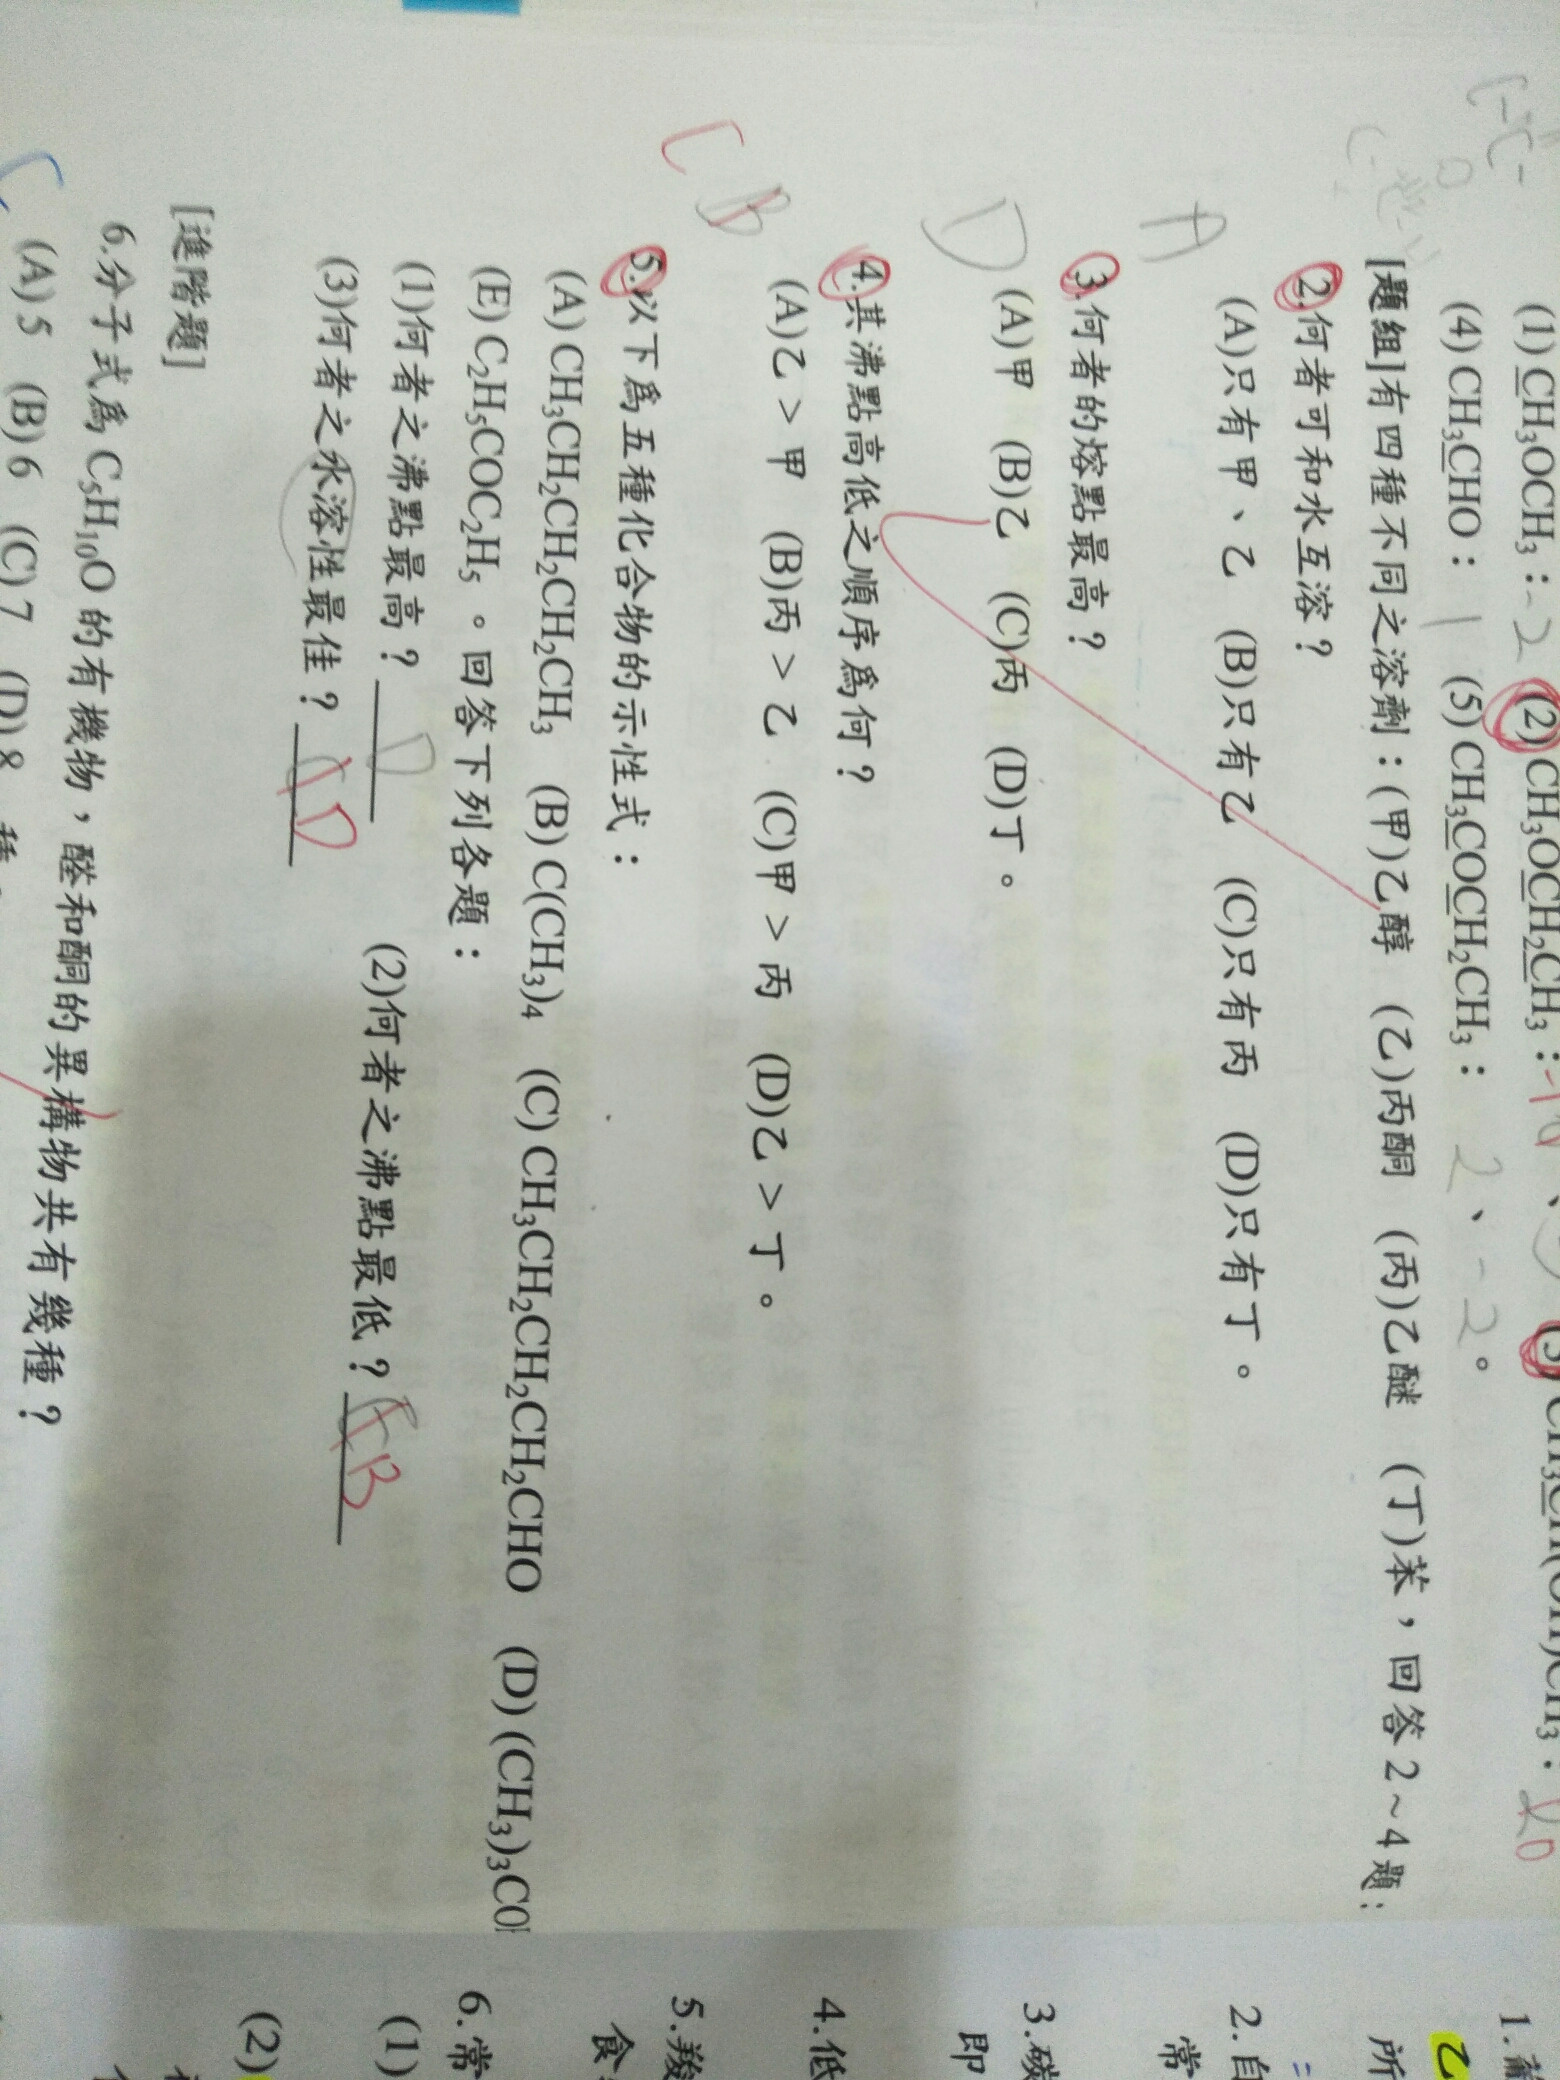 (1) CH₃OCH₃：-2 (2) CH₃OCH₂CH₃：
(4) CH₃CHO：1 (5) CH₃COCH₂CH₃：2、-2。
[題組]有四種不同之溶劑：(甲)乙醇 (乙)丙酮 (丙)乙醚 (丁)苯，回答2～4題：
A
2.何者可和水互溶？
(A)只有甲、乙 (B)只有乙 (C)只有丙 (D)只有丁。
D
3.何者的熔點最高？
(A)甲 (B)乙 (C)丙 (D)丁。
C B
4.其沸點高低之順序為何？
(A)乙＞甲 (B)丙＞乙 (C)甲＞丙 (D)乙＞丁。
5.以下為五種化合物的示性式：
(A) CH₃CH₂CH₂CH₂CH₂CH₃ (B) C(CH₃)₄ (C) CH₃CH₂CH₂CH₂CH₂CHO (D) (CH₃)₃CO
(E) C₂H₅COC₂H₅。回答下列各題：
(1)何者之沸點最高？D (2)何者之沸點最低？B
(3)何者之水溶性最佳？D
[進階題]
6.分子式為 C₅H₁₀O 的有機物，醛和酮的異構物共有幾種？
(A) 5 (B) 6 (C) 7 (D) 8 種
1.
乙
所
2.自
常
3.碳
即
4.低
5.羧
食
6.常
(1)
(2)